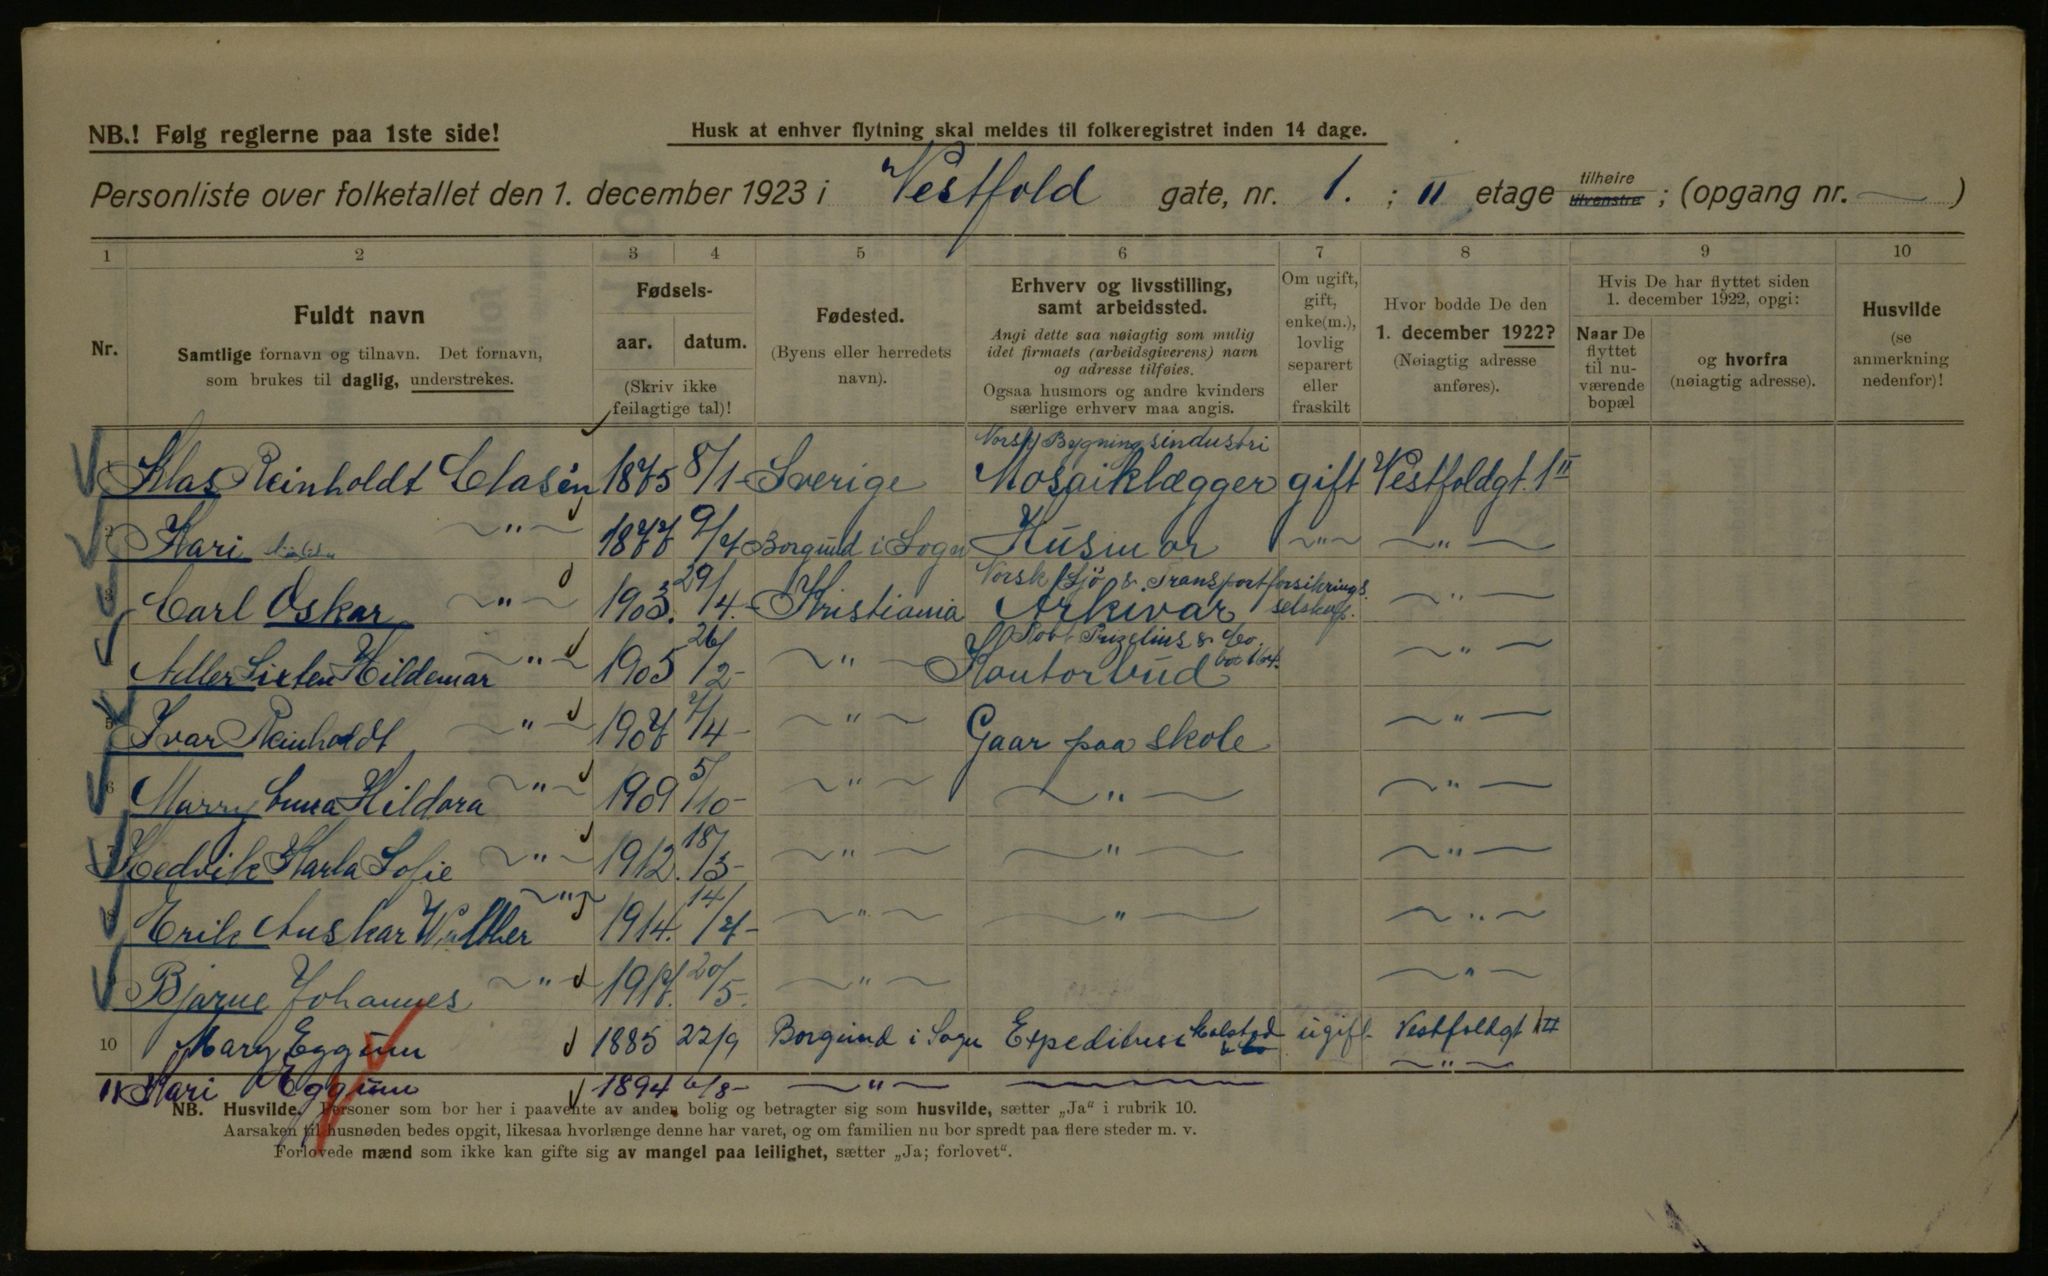 NB.! Følg reglerne paa 1ste side!
Husk at enhver flytning skal meldes til folkeregistret inden 14 dage.
Personliste over folketallet den 1. december 1923 i Vestfold gate, nr. 1. ; II etage tilhøire tilvenstre ; (opgang nr. — )
1 2 3 4 5 6 7 8 9 10
Nr.
Fuldt navn
Samtlige fornavn og tilnavn. Det fornavn,
som brukes til daglig, understrekes.
Fødsels-
aar. datum.
(Skriv ikke
feilagtige tal)!
Fødested.
(Byens eller herredets
navn).
Erhverv og livsstilling,
samt arbeidssted.
Angi dette saa nøiagtig som mulig
idet firmaets (arbeidsgiverens) navn
og adresse tilføies.
Ogsaa husmors og andre kvinders
særlige erhverv maa angis.
Om ugift,
gift,
enke(m.),
lovlig
separert
eller
fraskilt
Hvor bodde De den
1. december 1922?
(Nøiagtig adresse
anføres).
Hvis De har flyttet siden
1. december 1922, opgi:
Naar De
flyttet
til nu-
værende
bopæl
og hvorfra
(nøiagtig adresse).
Husvilde
(se
anmerkning
nedenfor)!
Norsk Bygningsindustri
Klas Reinholdt Clasén 1875 8/1 - Sverige Mosaiklægger gift Vestfoldgt. 1 II
2 Kari — " — 1877 9/7 Borgund i Sogn Husmor — " — — " —
Norsk Sjö & Transportforsikrings
3 Carl Oskar — " — 1903. 29/4 - Kristiania Arkivar selskap. — " —
& Co.
Adler Sixten Hildemar — " — 1905 26/2 - — " — Kontorbud — " —
5 Ivar Reinholdt — " — 1907 7/4 - — " — Gaar paa skole — " —
6 Marry Hildora — " — 1909 5/10 - — " — — " — — " —
7 Hedvik Karla Sofie — " — 1912. 18/3 - — " — — " — — " —
8 Erik Anskar Walther — " — 1914. 14/7 - — " — — " — — " —
9 Bjarne Johannes — " — 1917. 20/5 - — " — — " —
10 Mary Eggum 1885 22/9 Borgund i Sogn ugift Vestfoldgt 1 II
11 Kari Eggum 1894 6/8 - — " — — — " —
NB. Husvilde. Personer som bor her i paavente av anden bolig og betragter sig som husvilde, sætter „Ja" i rubrik 10.
Aarsaken til husnøden bedes opgit, likesaa hvorlænge denne har varet, og om familien nu bor spredt paa flere steder m. v.
Forlovede mænd som ikke kan gifte sig av mangel paa leilighet, sætter „Ja; forlovet".